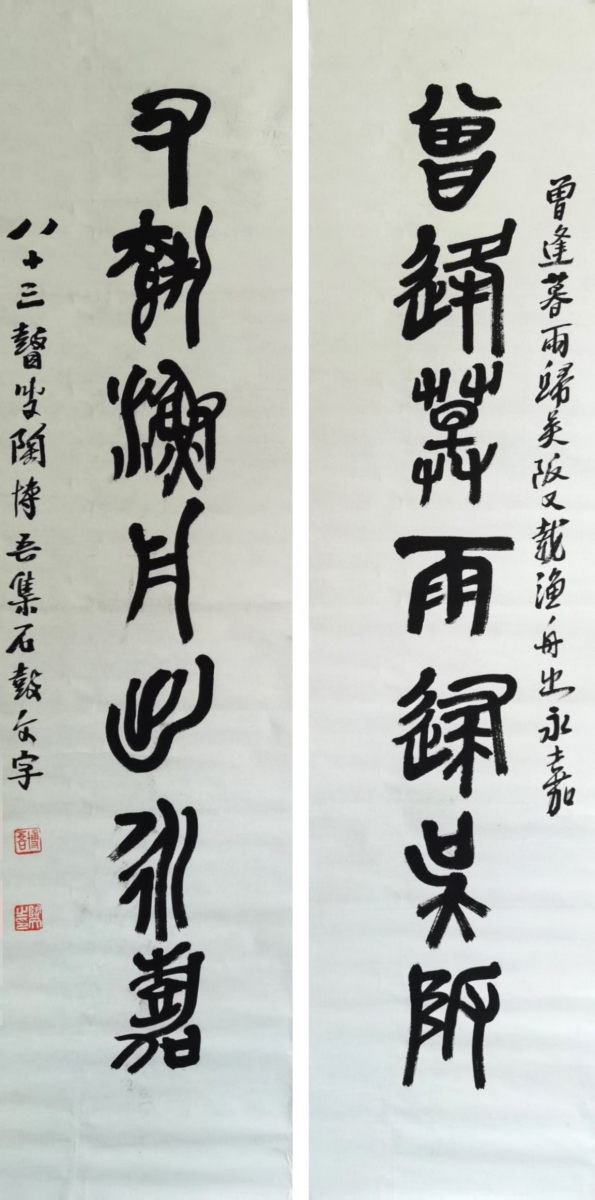 曾逢暮雨歸吴阪又載漁舟出永嘉
曾逢暮雨歸吴阪
又載漁舟出永嘉
八十三瞽叟陶博吾集石鼓文字
博吾